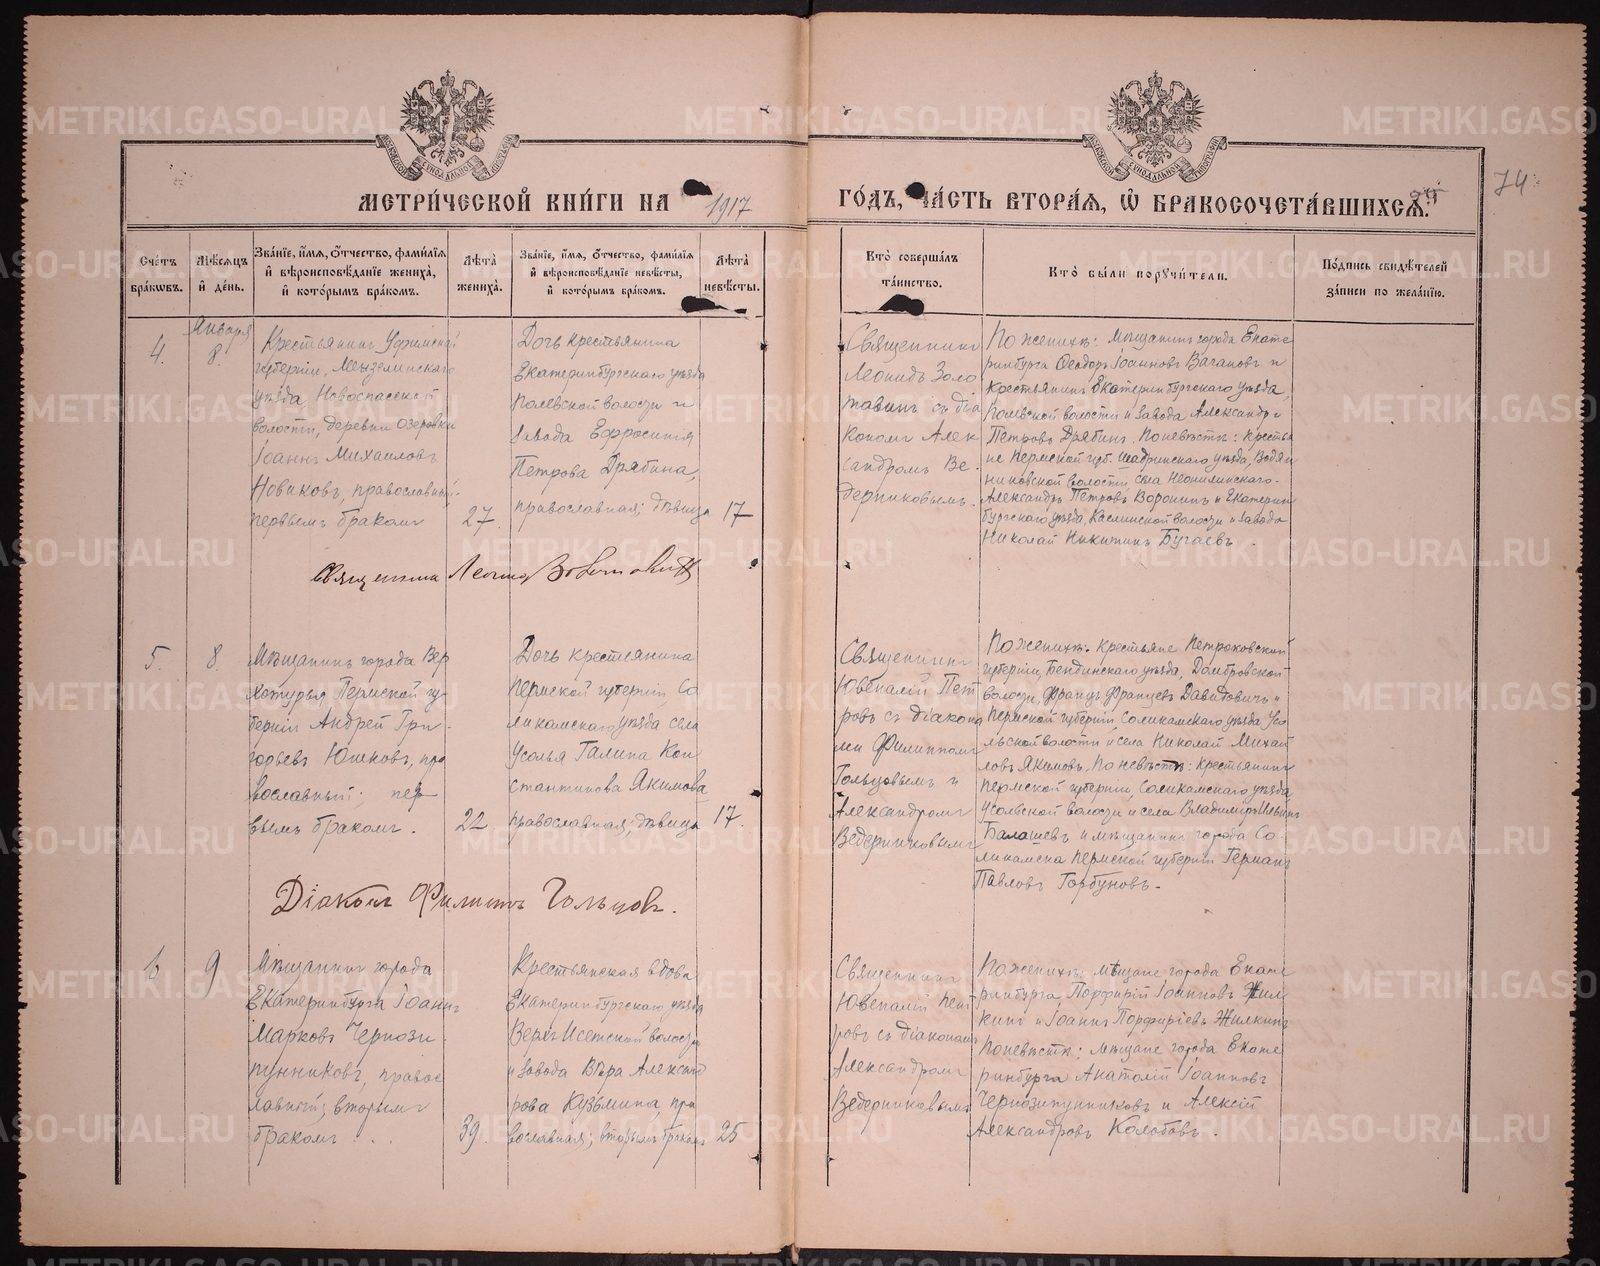 МЕТРИ́ЧЕСКОЙ КНИ́ГИ НА 1917 ГО́ДЪ, ЧА́СТЬ ВТОРА́Я, Ѡ БРАКОСОЧЕТА́ВШИХСЯ.
74
Сче́тъ бра́ковъ.
Мѣ́сяцъ и де́нь.
Зва́нїе, и́мя, о́тчество, фами́лїя и вѣроисповѣ́данїе жениха́, и кото́рымъ бра́комъ.
Лѣта̀ жениха̀.
Зва́нїе, и́мя, о́тчество, фами́лїя и вѣроисповѣ́данїе невѣ́сты, и кото́рымъ бра́комъ.
Лѣта̀ невѣ́сты.
Кто̀ соверша́лъ та́инство.
Кто̀ бы́ли поручи́тели.
По́дпись свидѣ́телей за́писи по жела́нїю.
4.
Января
8.
Крестьянинъ Уфимской
губерніи, Мензелинскаго
уѣзда Новоспасской
волости, деревни Озеровки
Іоаннъ Михаиловъ
Новиковъ, православный,
первымъ бракомъ
27.
Дочь крестьянина
Екатеринбургскаго уѣзда
Полевской волости и
завода Евфросинія
Петрова Дрябина,
православная; дѣвица
17
Священникъ
Леонидъ Золо
тавинъ съ діа
кономъ Алек
сандромъ Ве-
дерниковымъ.
По женихѣ: мѣщанинъ города Екате
ринбурга Ѳеодоръ Іоанновъ Вачановъ и
крестьянинъ Екатеринбургскаго уѣзда,
Полевской волости и завода Александръ
Петровъ Дрябинъ. По невѣстѣ: крестья
не Пермской губ. Шадринскаго уѣзда, Водян
никовской волости, села
Александръ Петровъ Воронинъ и Екатерин
бургскаго уѣзда, Каслинской волости и завода
Николай Никитинъ Бугаевъ.
Священникъ Леонид
5.
8.
Мѣщанинъ города Вер
хотурья Пермской гу-
берніи Андрей Гри-
горьевъ Юшковъ, пра
вославный; пер-
вымъ бракомъ.
22
Дочь крестьянина
Пермской губерніи, Со
ликамскаго уѣзда села
Усолья Галина Кон
стантинова Якимова
православная; дѣвица
17.
Священникъ
Ювеналій Пет
ровъ съ діакона
ми Филиппомъ
Гольцовымъ и
Александромъ
Ведерниковымъ
По женихѣ: крестьяне Петроковской
губерніи, Бендинскаго уѣзда, Домбровской
волости, Францъ Францевъ Давидовичъ и
Пермской губерніи Соликамскаго уѣзда Усо
льской волости и села Николай Михай
ловъ Якимовъ. По невѣстѣ: крестьянинъ
Пермской губерніи, Соликамскаго уѣзда
Усольской волости и села Владимiръ Ильинъ
Балашевъ и мѣщанинъ города Со-
ликамска Пермской губерніи Германъ
Павловъ Горбуновъ.
Діаконъ Филиппъ Гольцовъ.
6
9
Мѣщанинъ города
Екатеринбурга Іоаннъ
Марковъ Чернози
пунниковъ, право
славный; вторымъ
бракомъ ...
39.
Крестьянская вдова
Екатеринбургскаго уѣзда
Верхъ Исетской волости
и завода Вѣра Александ
рова Кузьмина, пра
вославная; вторымъ бракомъ
25
Священникъ
Ювеналій Пет
ровъ съ діакономъ
Александромъ
Ведерниковымъ
По женихѣ: мѣщане города Екате
ринбурга, Порфирій Іоанновъ Жил
кинъ и Іоаннъ Порфиріевъ Жилкинъ
По невѣстѣ: мѣщане города Екате
ринбурга Анатолій Іоанновъ
Чернозипунниковъ и Алексій
Александровъ Колобовъ.
METRIKI.GASO-URAL.RU